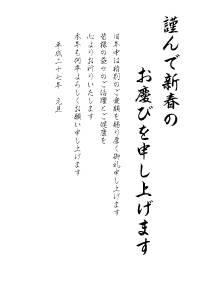 謹んで新春の
お慶びを申し上げます
旧年中は格別のご愛顧を賜り厚く御礼申し上げます
皆様の益々のご活躍とご健康を
心よりお祈りいたします
本年も何卒よろしくお願い申し上げます
平成二十七年 元旦